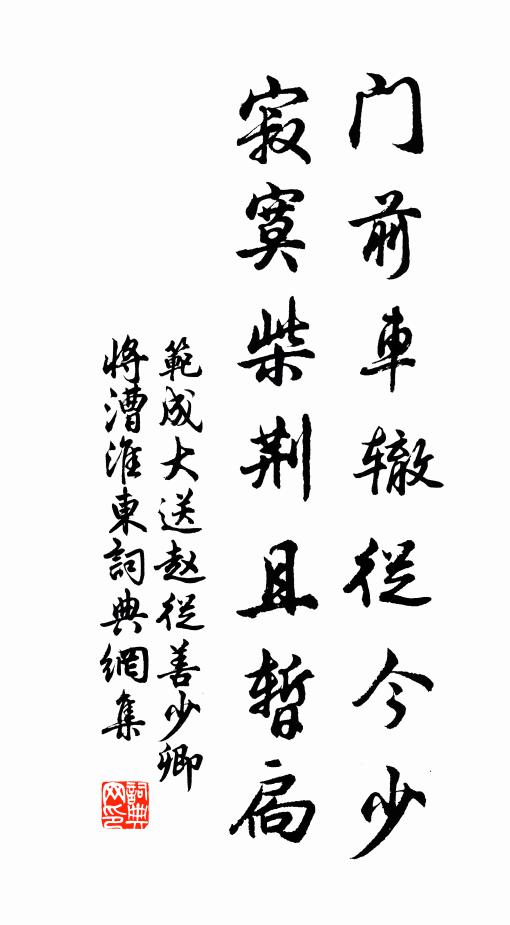 门前車辙從今少
寂寞柴荆且暫扃
範成大送赵從善少卿
将漕淮東詞典網集
詞典网印